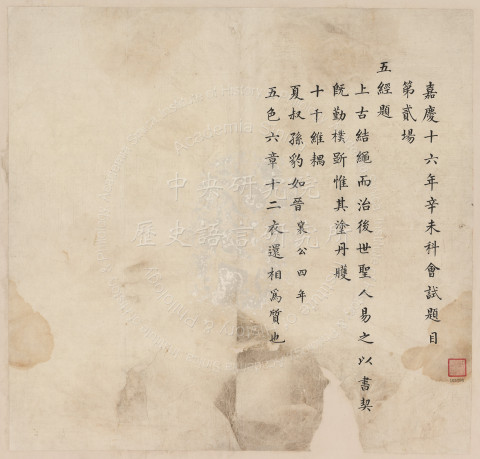 嘉慶十六年辛未科會試題目
第貳場
五經題
上古結繩而治後世聖人易之以書契
既勤樸斲惟其塗丹雘
十千維耦
夏叔孫豹如晉襄公四年
五色六章十二衣還相為質也
中央研究院
歷史語言研究所